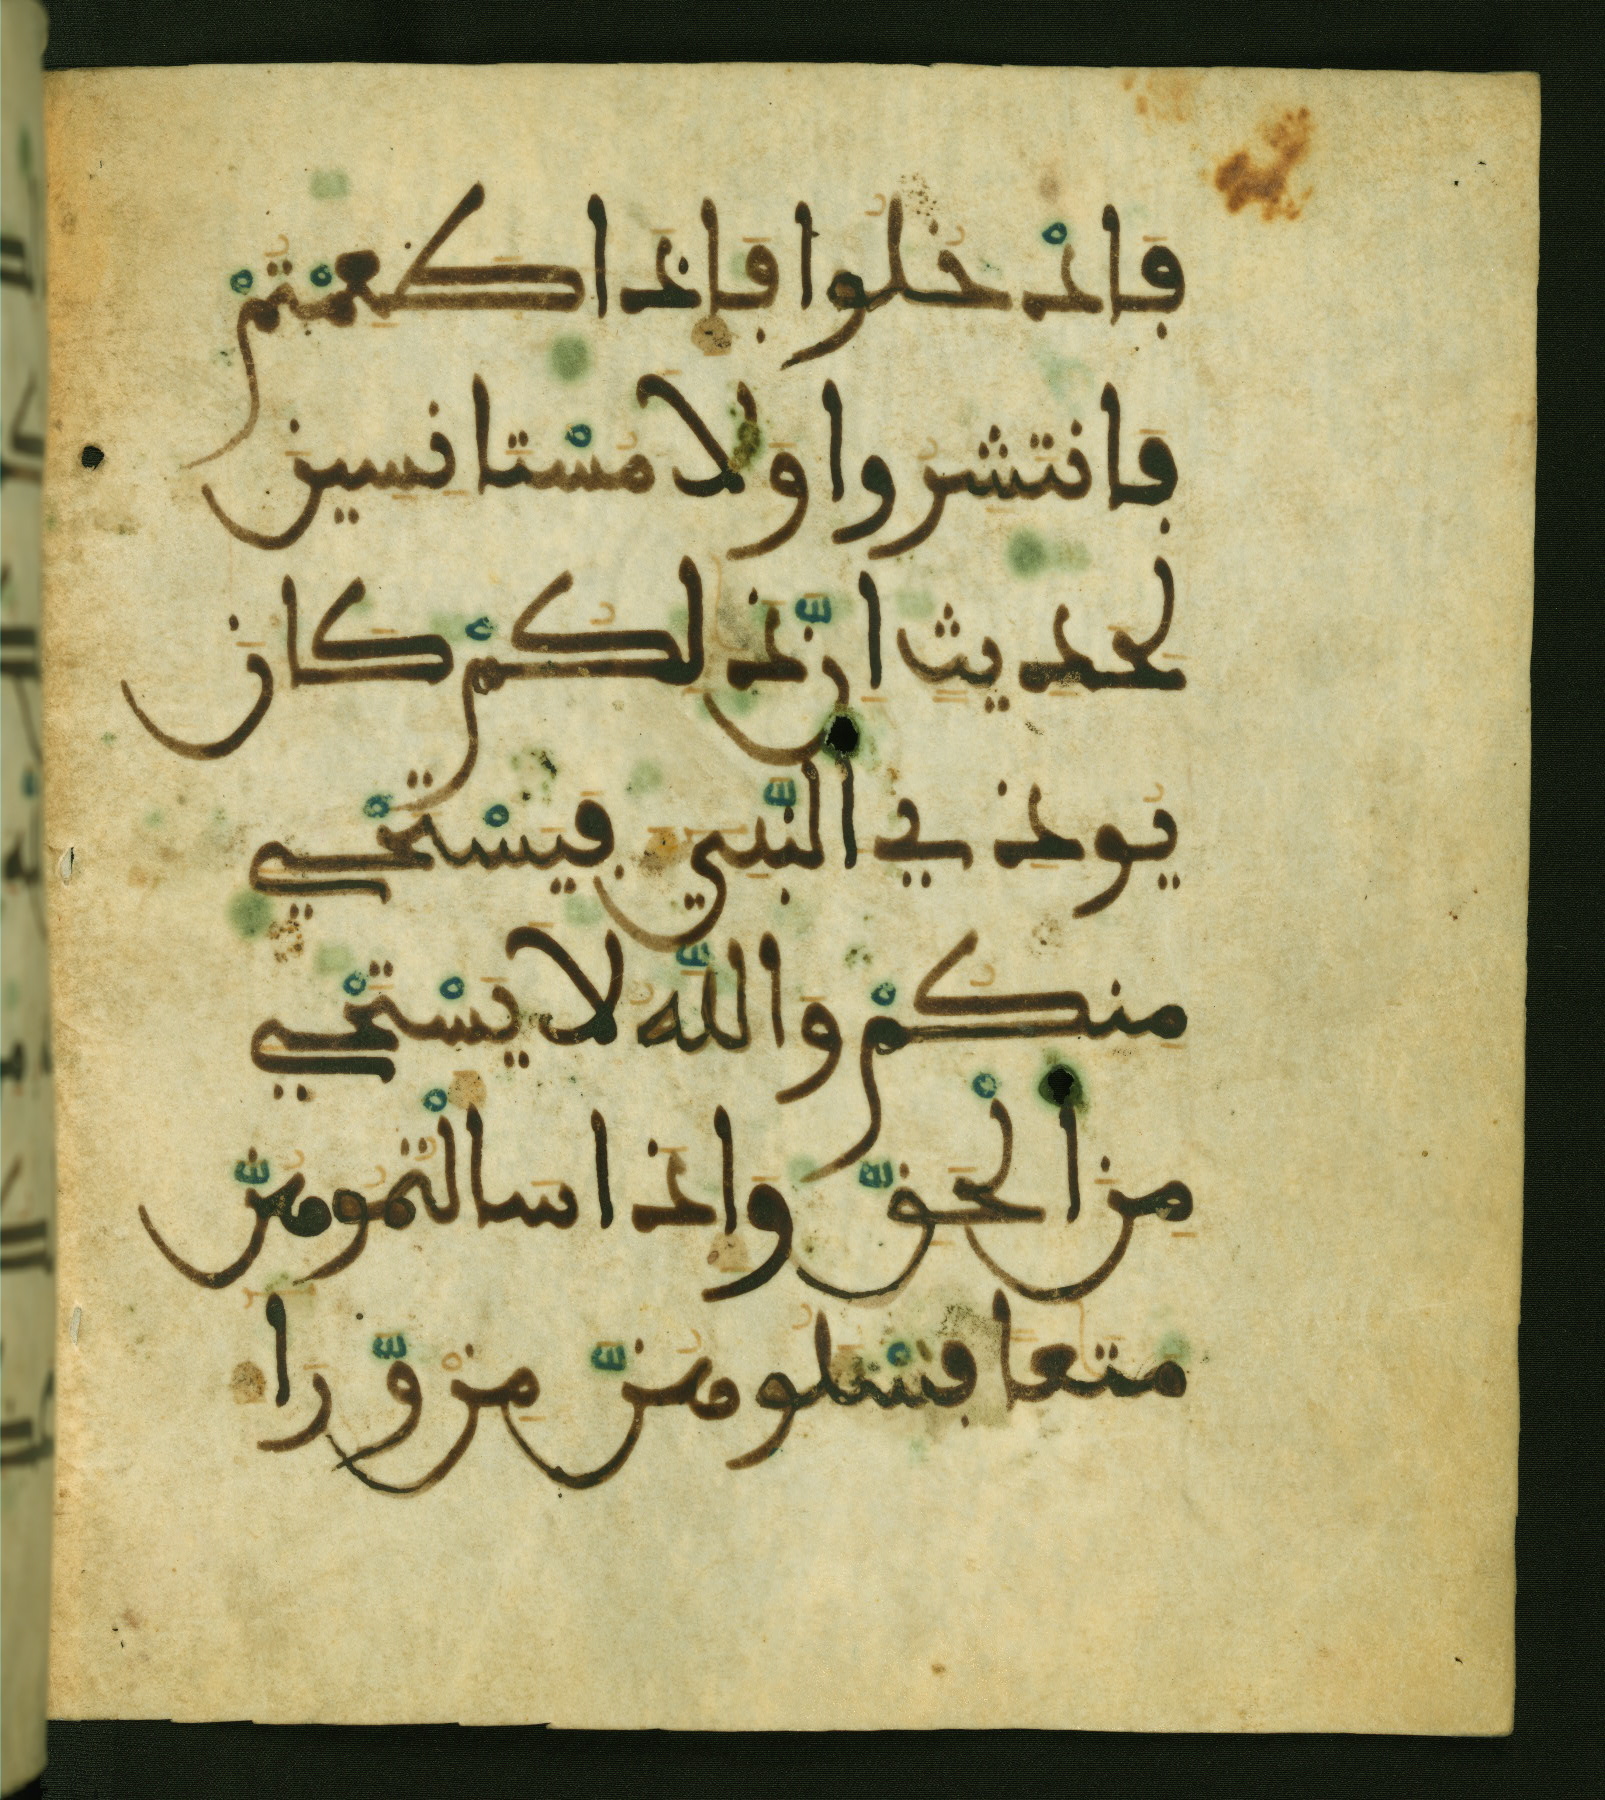 فَادْخُلُوا فَإِذَا طَعِمْتُمْ
فَانتَشِرُوا وَلَا مُسْتَانِسِينَ
لِحَدِيثٍ اِنَّ ذَلِكُمْ كَانَ
يُوذِي النَّبِيَّ فَيَسْتَحْيِي
مِنكُمْ وَاللَّهُ لَا يَسْتَحْيِي
مِنَ الْحَقِّ وَإِذَا سَالْتُمُوهُنَّ
مَتَعًا فَسْـَٔلُوهُنَّ مِنْ وَّرَا